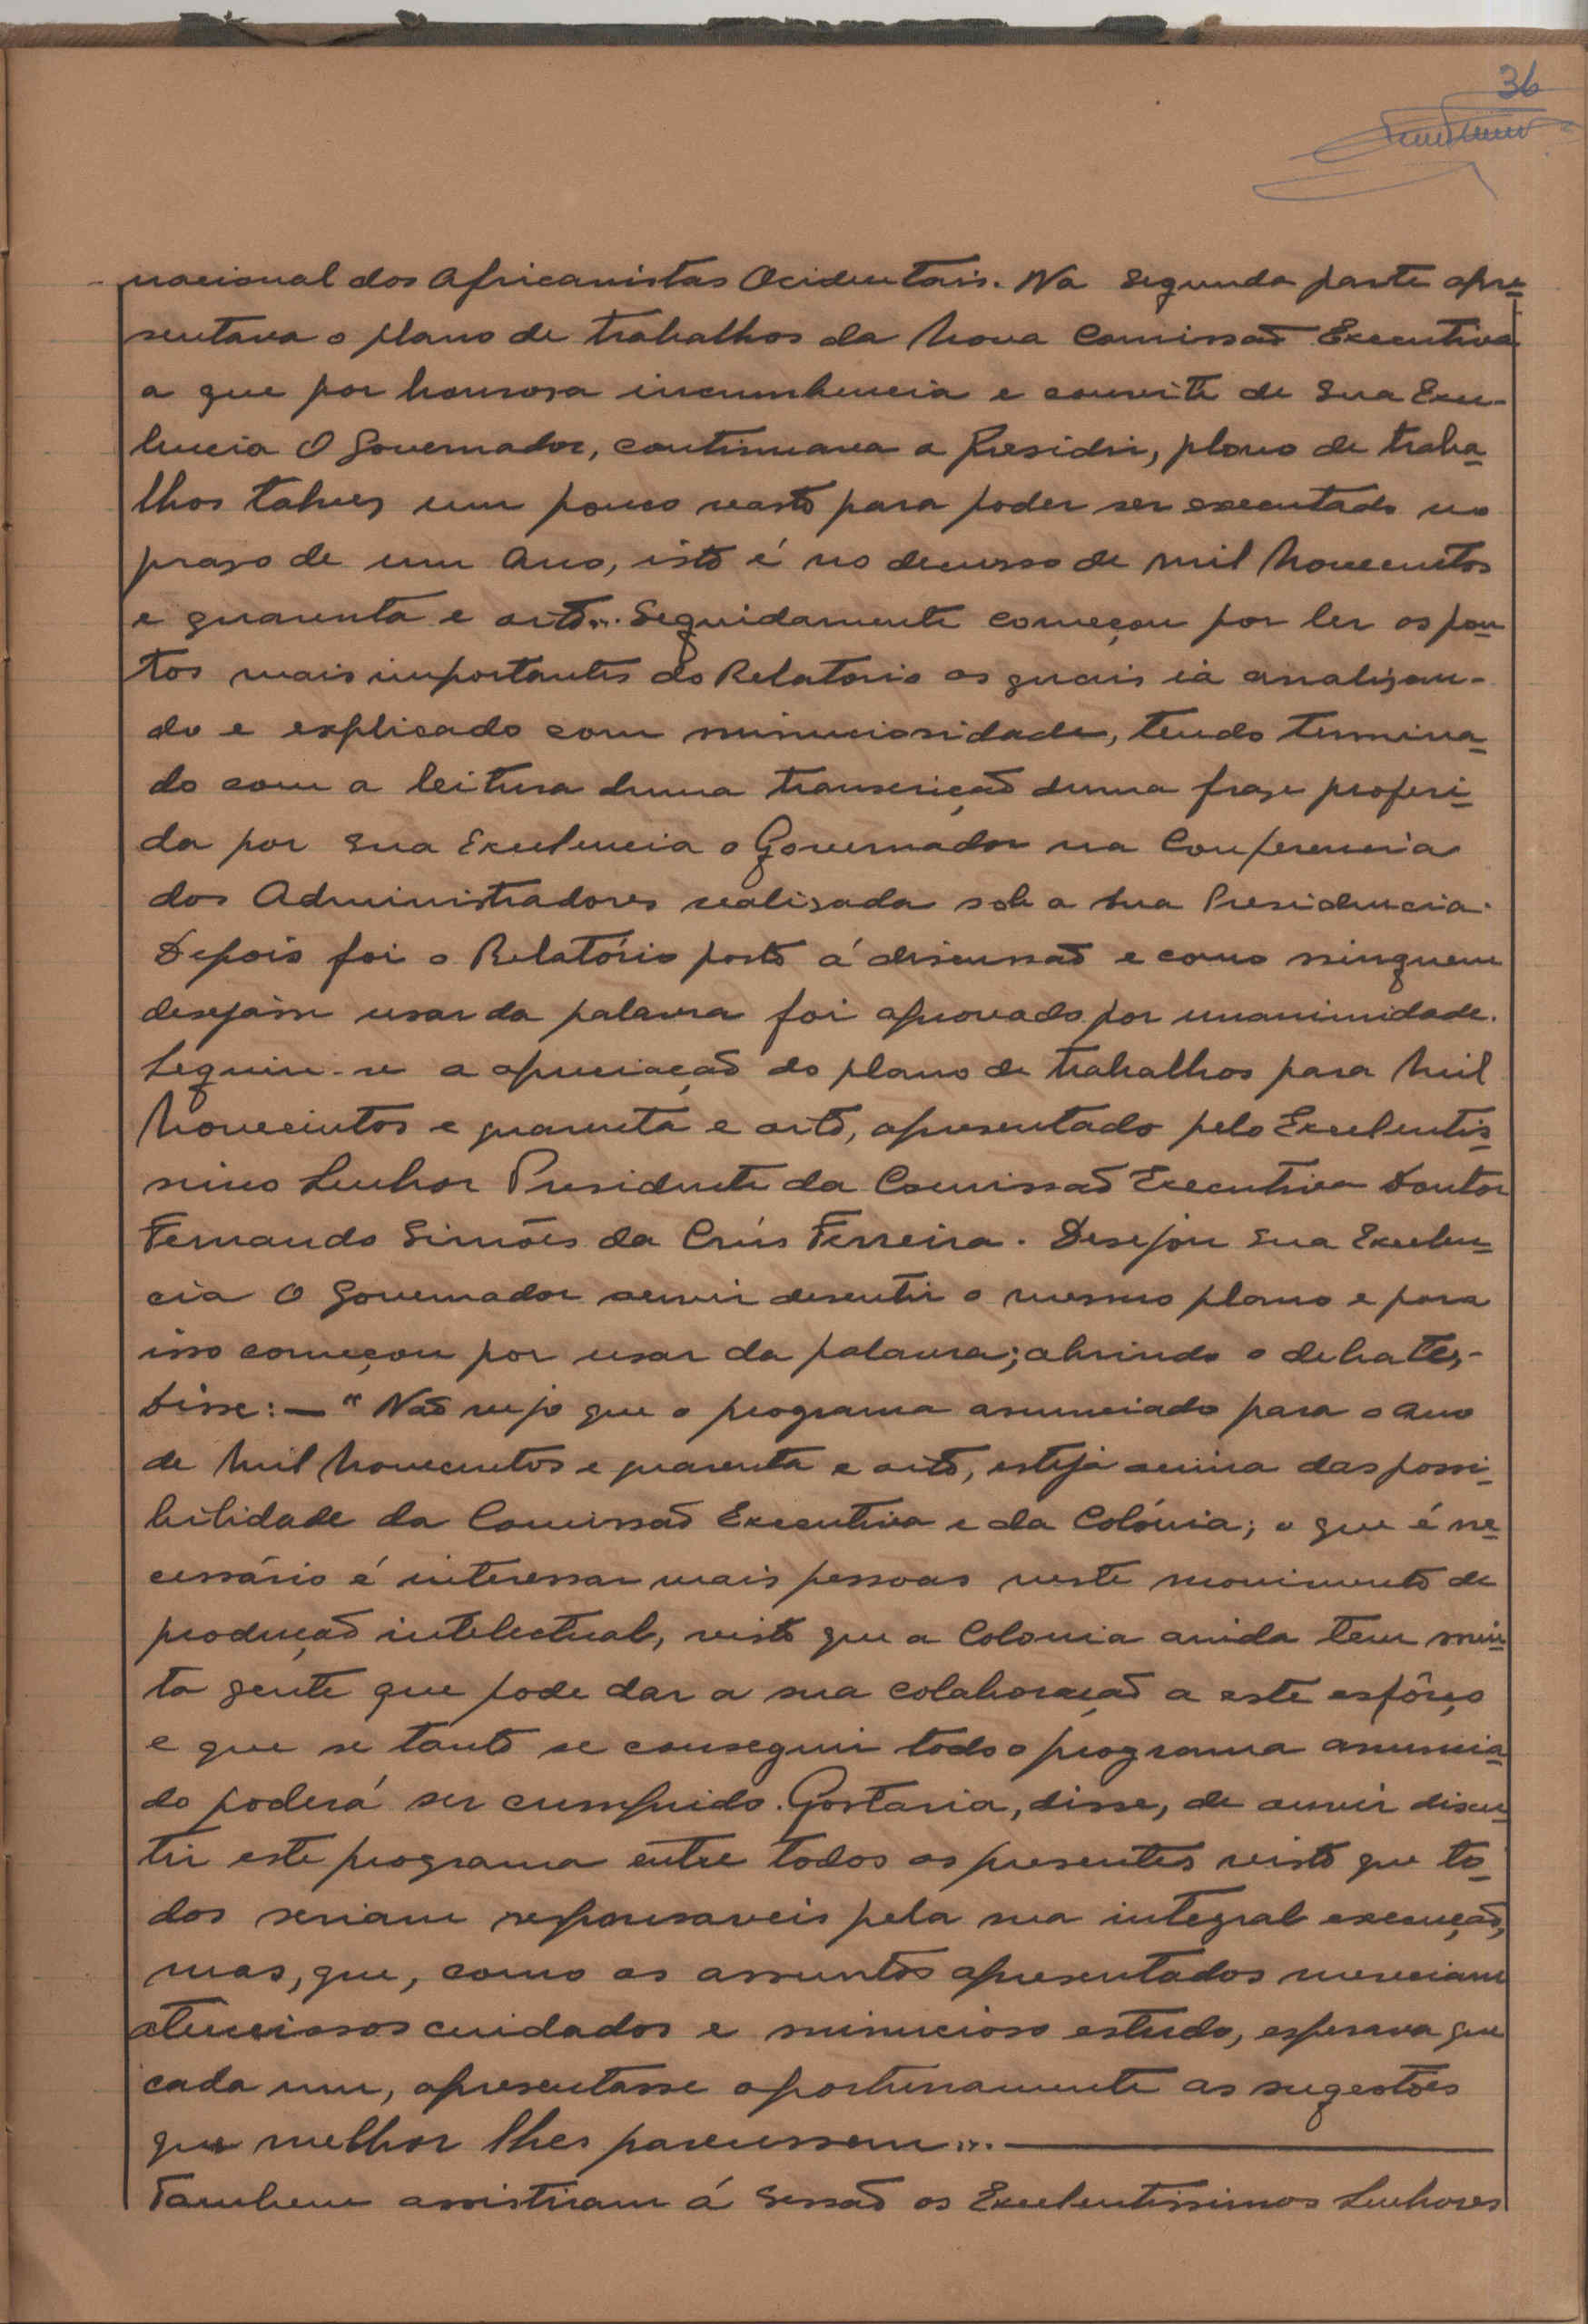 36
nacional dos Africanistas Ocidentais. Na segunda parte apre-
sentava o plano de trabalhos da nova Comissão Executiva
a que por honrosa incumbencia e convite de Sua Exce-
lencia O Governador, continuava a Presidir, plano de traba-
lhos talvez um pouco vasto para poder ser executado no
praso de um Ano, isto é no decurso de mil novecentos
e quarenta e oito". Seguidamente começou por ler os pon-
tos mais importantes do Relatorio os quais ia analizan-
do e explicado com minuciosidade, tendo termina-
do com a leitura duma transcrição duma frase proferi-
da por Sua Excelencia o Governador na Conferencia
dos Administradores realisada sob a sua Presidencia.
Depois foi o Relatório posto á discussão e como ninguem
desejasse usar da palavra foi aprovado por unanimidade.
Seguiu-se a apreciação do plano de trabalhos para mil
novecentos e quarenta e oito, apresentado pelo Excelentis-
simo Senhor Presidente da Comissão Executiva Doutor
Fernando Simões da Crús Ferreira. Desejou Sua Excelen-
cia O Governador ouvir descutir o mesmo plano e para
isso começou por usar da palavra; abrindo o debate,-
Disse:- " Não vejo que o programa anunciado para o ano
de mil novecentos e quarenta e oito, esteja acima das possi-
bilidade da Comissão Executiva e da Colónia; o que é ne-
cessário é interessar mais pessoas neste movimento de
produção intelectual, visto que a Colonia ainda tem mui-
ta gente que pode dar a sua colaboração a este esfôrço
e que se tanto se conseguir todo o programa anuncia-
do poderá ser cumprido. Gostaria, disse, de ouvir discu-
tir este programa entre todos os presentes visto que to-
dos seriam responsaveis pela sua integral execução,
mas, que, como os assuntos apresentados mereciam
atenciosos cuidados e minucioso estudo, esperava que
cada um, apresentasse oportunamente as sugestões
que melhor lhes parecessem".
Tambem assistiram á sessão os Excelentissimos Senhores